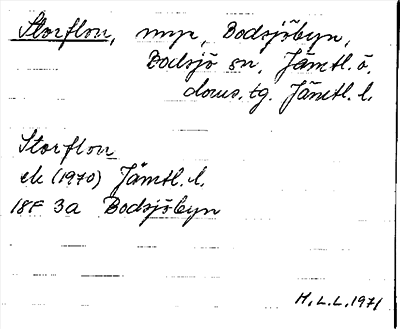 Storflon, myr, Bodsjöbyn,
Bodsjö sn, Jämtl. ö.
doms. tg. Jämtl. l.
Storflon
ek (1970) Jämtl. l.
18F 3a Bodsjöbyn
H.L.L. 1971